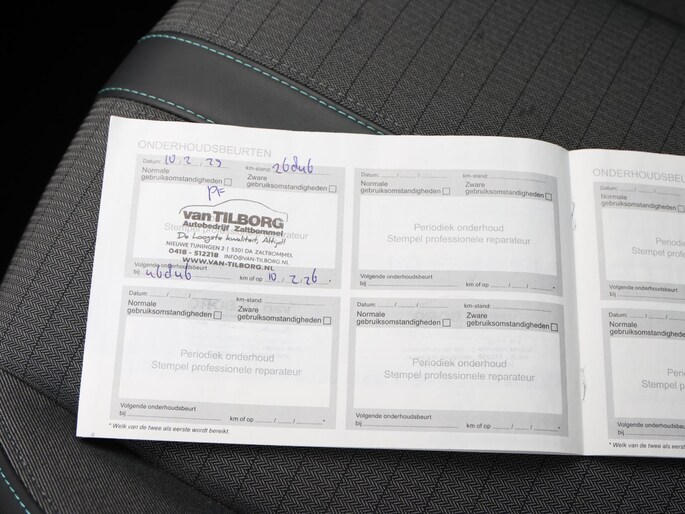 ONDERHOUDSBEURTEN
Datum: 10.2.25 km-stand:
Normale gebruiksomstandigheden
Zware gebruiksomstandigheden
PF
vanTILBORG
Autobedrijf Zaltbommel
De Hoogste kwaliteit, Altijd!
NIEUWE TUNINGEN 2 | 5301 DA ZALTBOMMEL
0418 - 512218 INFO@VAN-TILBORG.NL
WWW.VAN-TILBORG.NL
Volgende onderhoudsbeurt
bij km of op 10.2.26.
Datum: / / km-stand:
Normale gebruiksomstandigheden
Zware gebruiksomstandigheden
Periodiek onderhoud
Stempel professionele reparateur
Volgende onderhoudsbeurt
bij km of op / / *
Datum: / / km-stand:
Normale gebruiksomstandigheden
Zware gebruiksomstandigheden
Periodiek onderhoud
Stempel professionele reparateur
Volgende onderhoudsbeurt
bij km of op / / *
Datum: / / km-stand:
Normale gebruiksomstandigheden
Zware gebruiksomstandigheden
Periodiek onderhoud
Stempel professionele reparateur
Volgende onderhoudsbeurt
bij km of op / / *
* Welk van de twee als eerste wordt bereikt.
ONDERHOUDSBEU
Datum: / /
Normale
gebruiksomstandig
Pe
Stempel
Volgende onderhoudsbeurt
bij
Datum: / /
Normale
gebruiksomstandig
Pe
Stempel
Volgende onderhoudsbeurt
bij
* Welk van de twee als eer